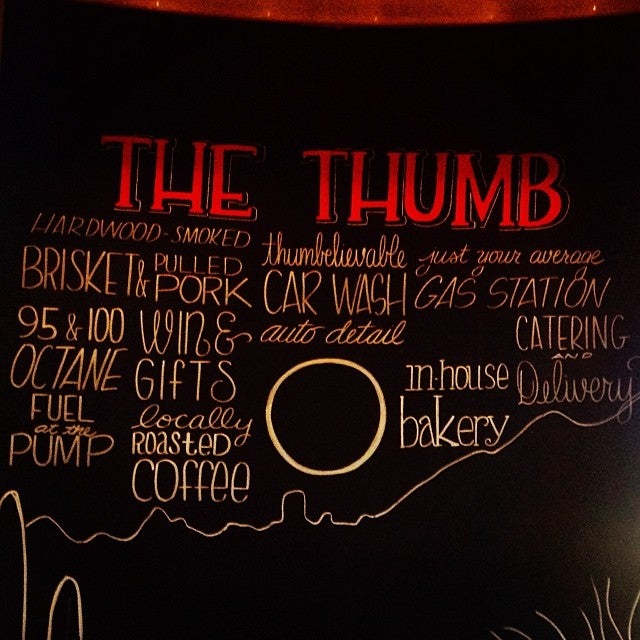 THE THUMB
HARDWOOD-SMOKED
BRISKET & PULLED PORK
thumbelievable
CAR WASH
auto detail
just your average
GAS STATION
95 & 100
OCTANE
FUEL
at the
PUMP
WINE &
GIFTS
locally
ROASTED
COFFEE
in-house
bakery
CATERING
AND
Delivery